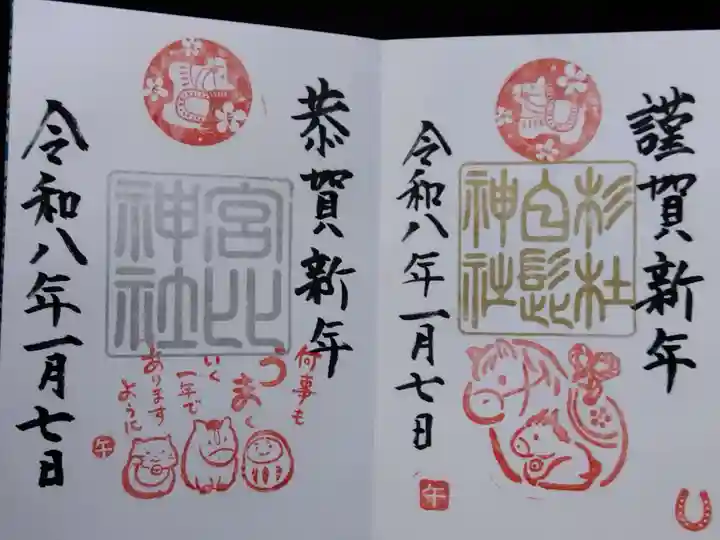 謹賀新年
杉杜
白髭
神社
令和八年一月七日
午
恭賀新年
宮比
神社
何事も
うまく
いく
一年で
あります
ように
午
令和八年一月七日